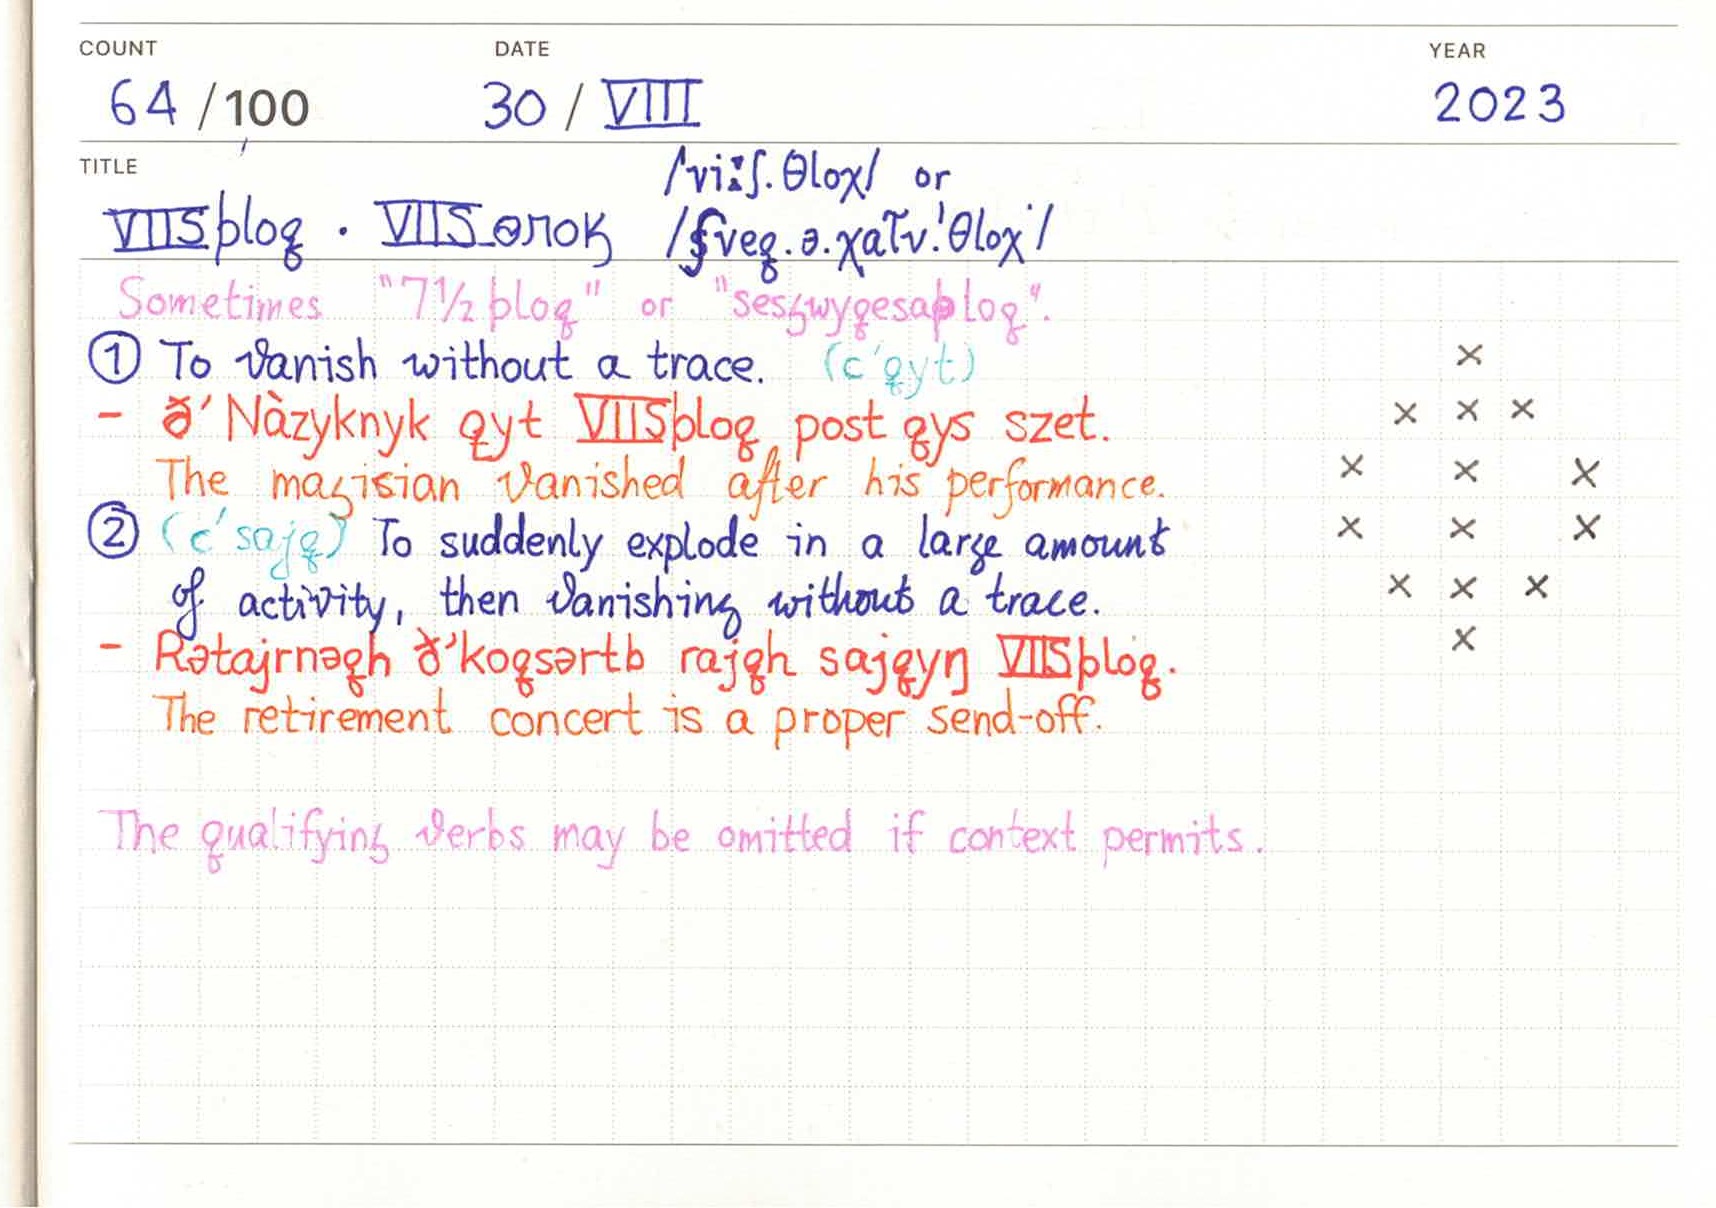 COUNT DATE YEAR
64 /100 30 / VIII 2023
TITLE /viːʃ.θloχ/ or
VIISþloq · VIIS-ѳлок
Sometimes "7½ þloq" or
① To vanish without a trace. (c'qyt)
- ð' Nàzyknyk qyt VIISþloq post qys szet.
The magisian vanished after his performance.
② (c'sajq) To suddenly explode in a large amount
of activity, then vanishing without a trace.
- Rətajrnəqh ð'koqsərtb rajqh sajqyŋ VIISþloq.
The retirement concert is a proper send-off.
The qualifying verbs may be omitted if context permits.
×
× × ×
× × ×
× × ×
× × ×
×